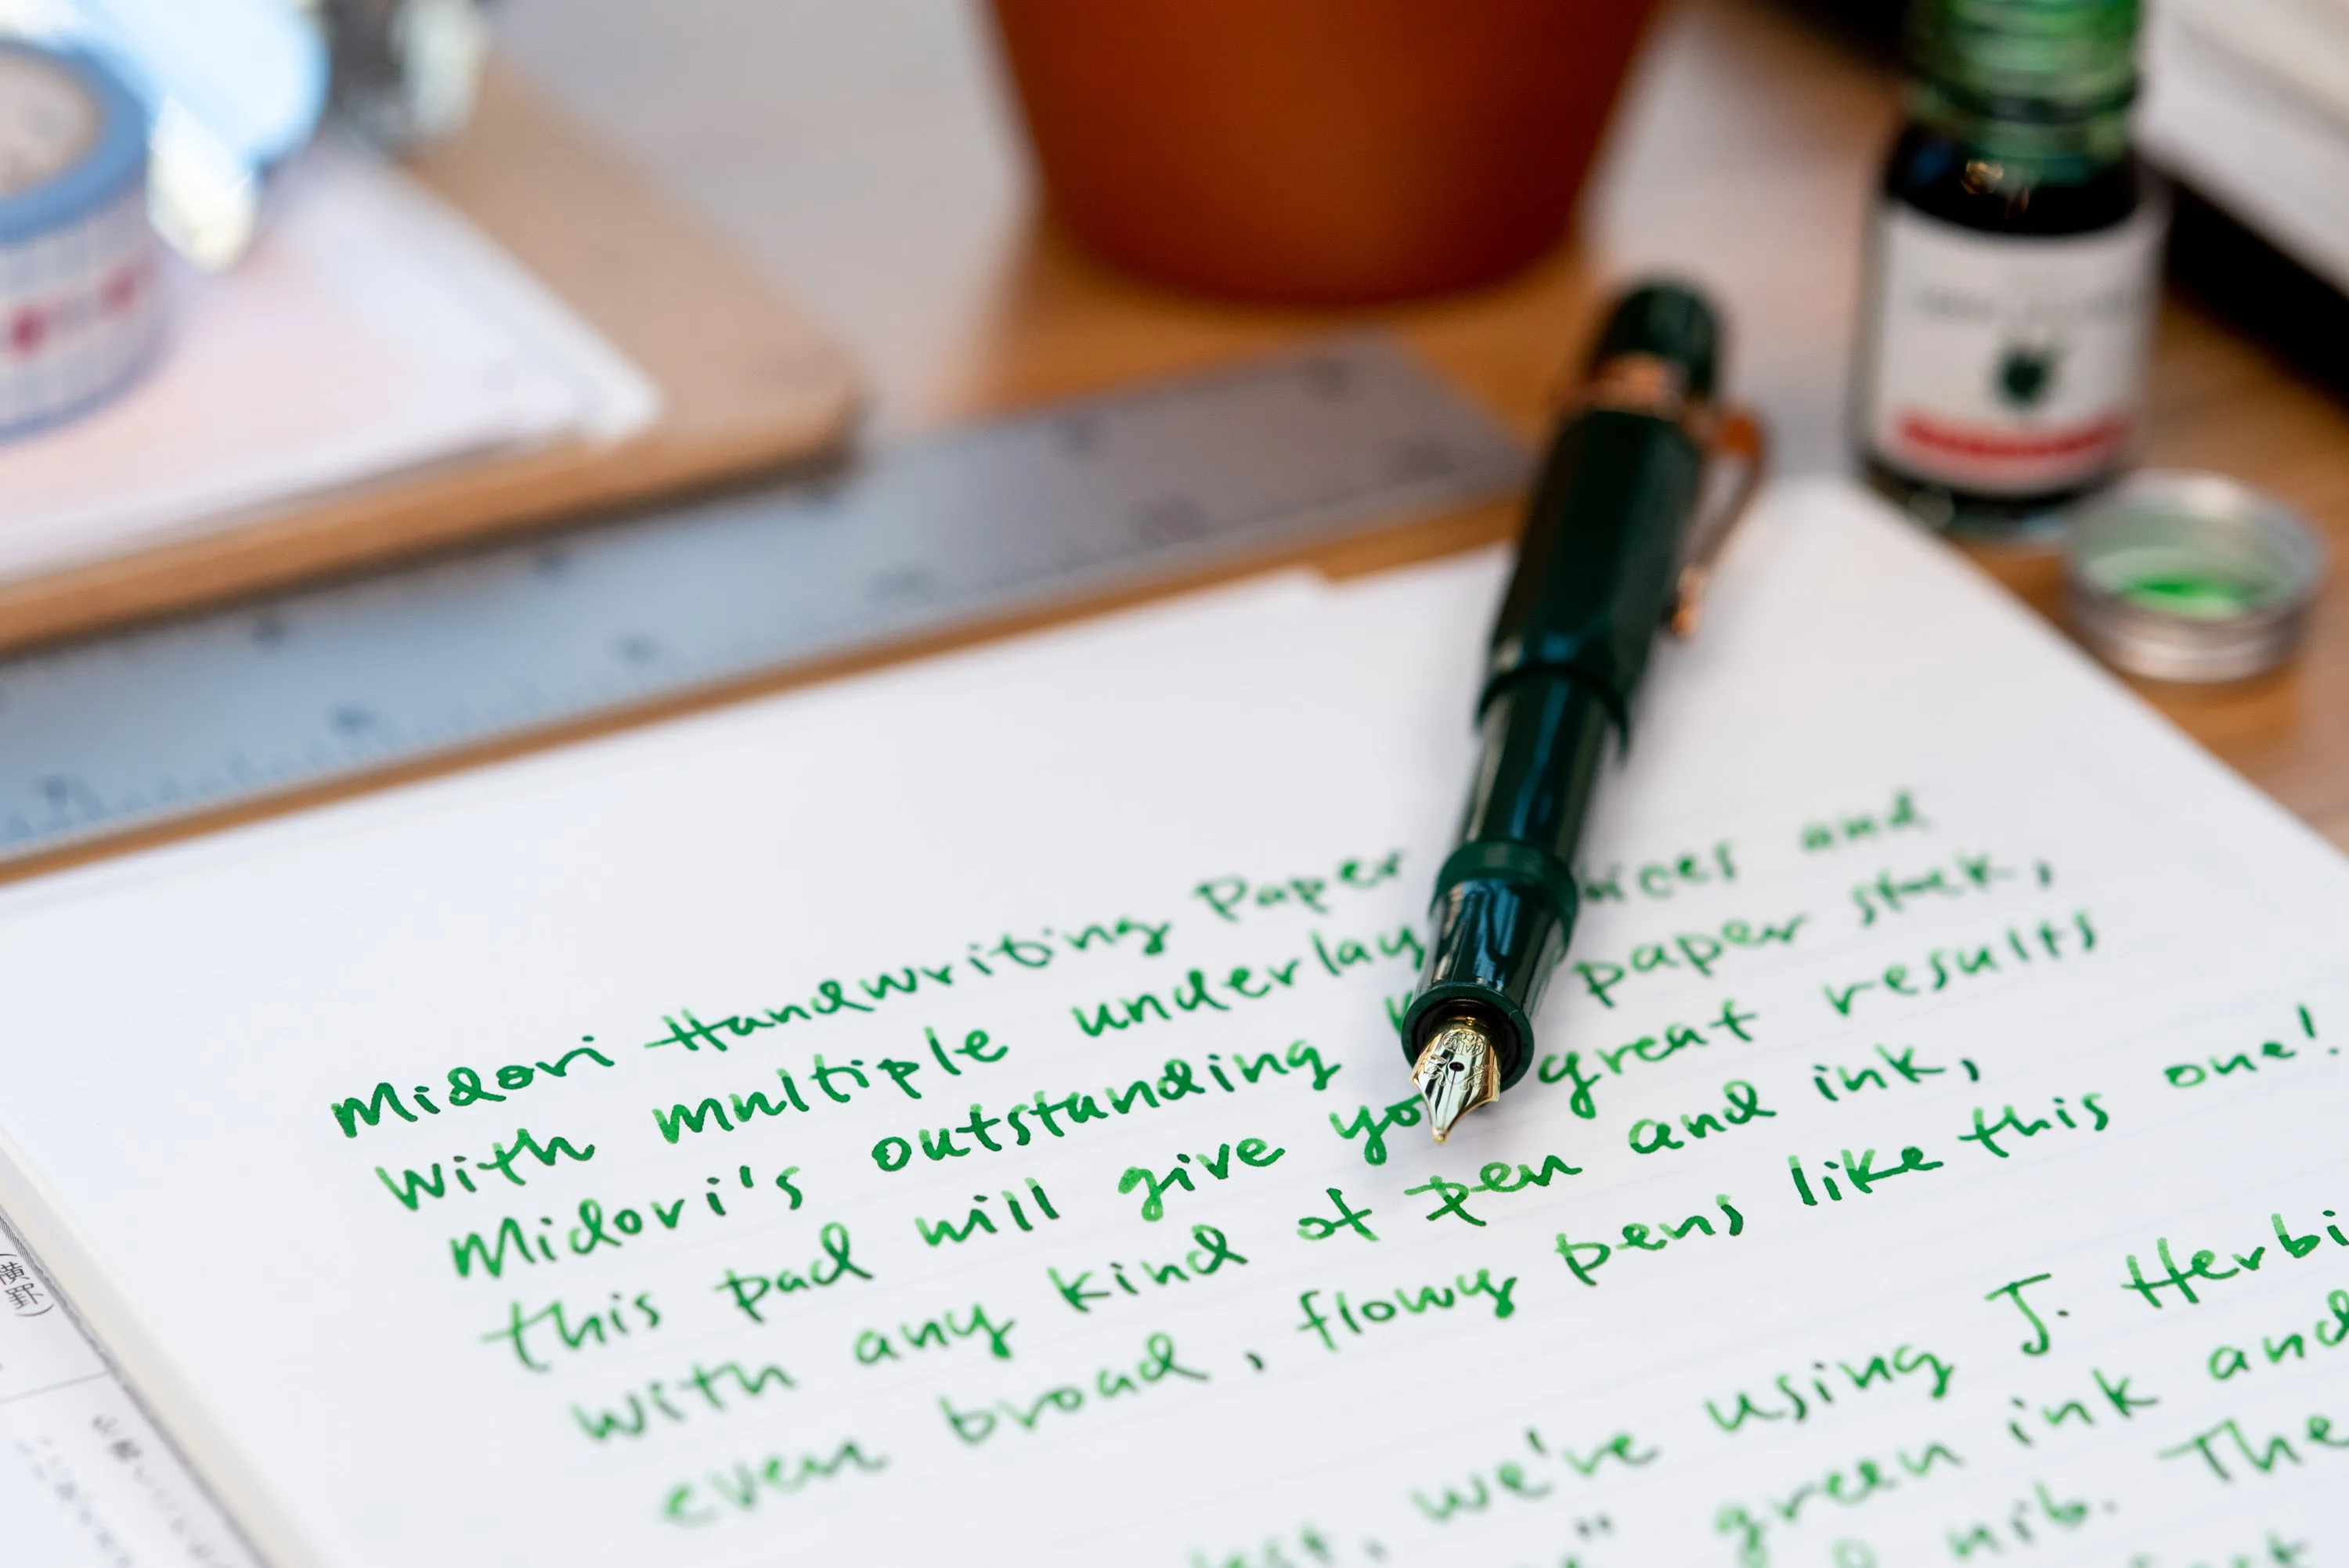 Midori Handwriting Paper and
With multiple underlay paper stock,
Midori's outstanding great results
this pad will give you and ink,
with any kind of pen like this one!
even broad, flowy pens
we're using J. Herbi
green ink and
nib. The
(横罫)